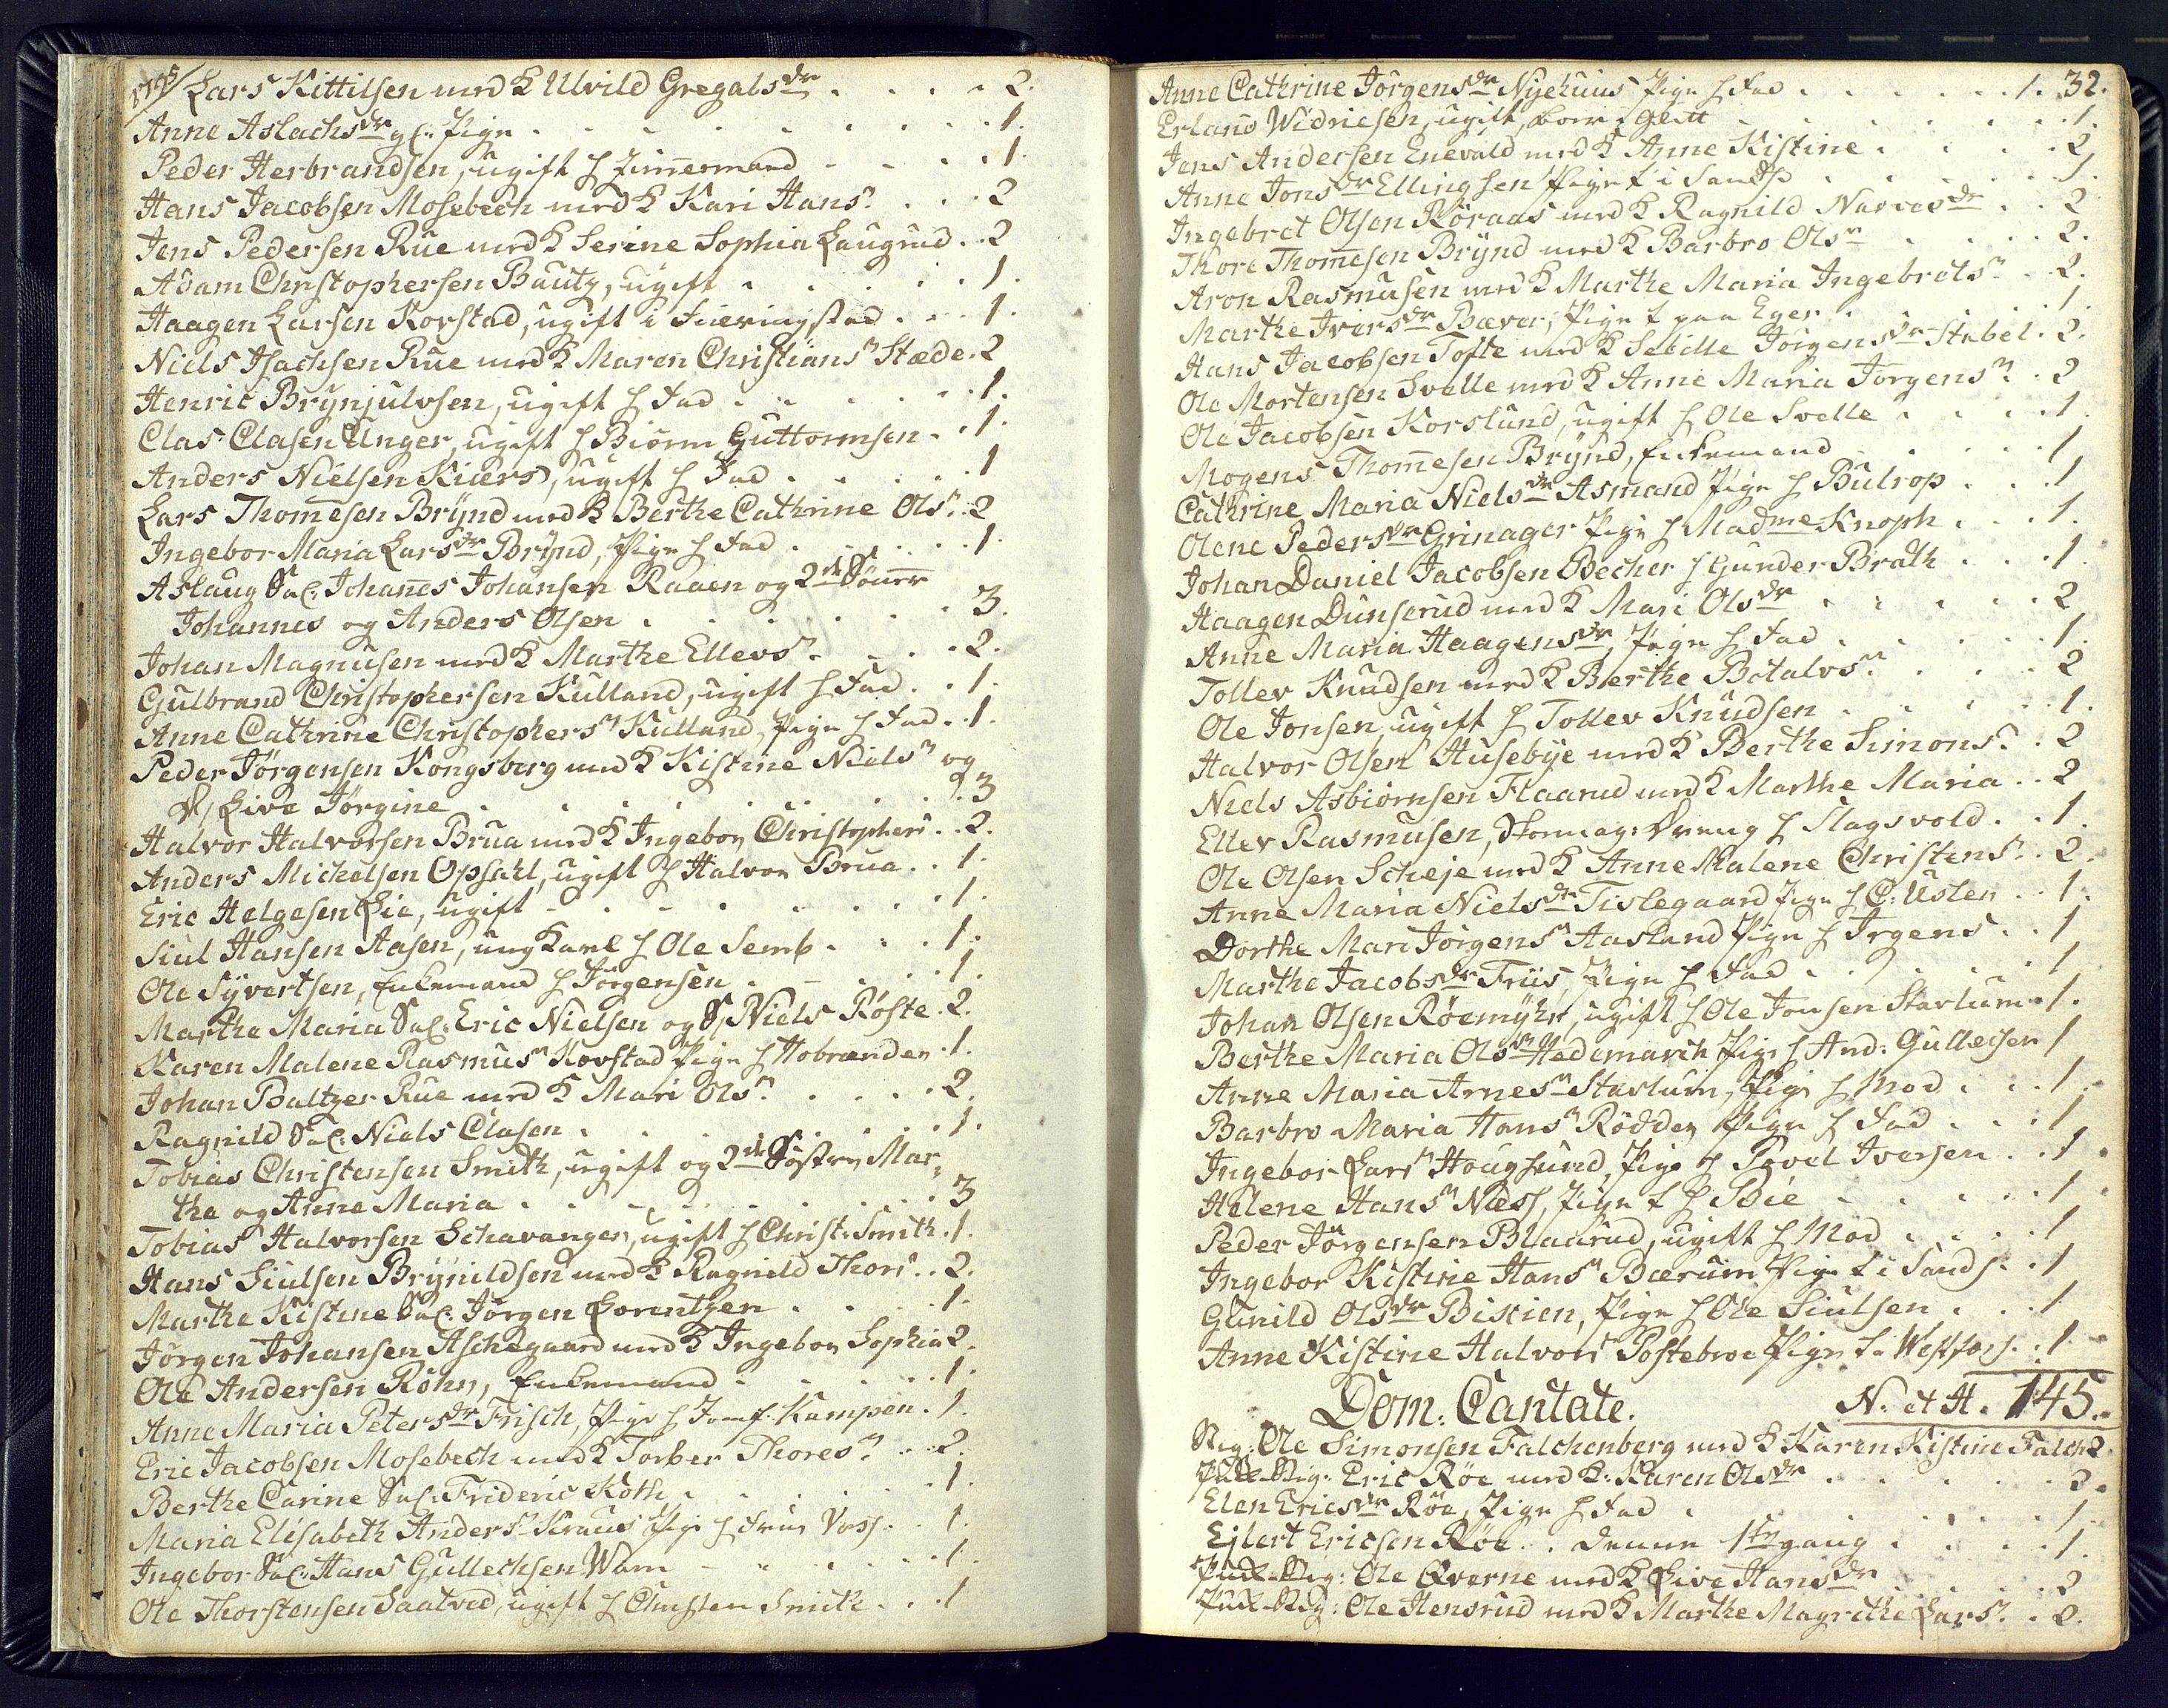 1795/ Lars Kittilsen med K Ulvild Gregalsdr . . . . 2.
Anne Aslachsdr gl: Pige . . . . . . . . 1.
Peder Herbrandsen, ugift h Zimermand - - . . 1.
Hans Jacobsen Mosebech med K Kari Hansr. . . . 2
Jens Pedersen Rue med K Serine Sophia Laugrud . . 2
Adam Christophersen Bautz, ugift . . . . . 1.
Haagen Larsen Korstad, ugift i . . . 1.
Niels Isachsen Rue med K Maren Christiansr Stæde . 2
Henric Brynjulvsen, ugift h Fad . . . . . 1.
Clas Clasen Unger, ugift h Biørn Guttormsen . . 1.
Anders Nielsen Kiærs, ugift h Fad . . . . 1
Lars Thomesen Brynd med K Berthe Cathrine Olsr. 2
Ingebor Maria Larsdr Brynd, Pige h Fad . . . . . 1.
Aslaug Sal: Johanes Johansen Raaen og 2de Sönner
Johannes og Anders Olsen . . . . . . 3.
Johan Magnusen med K Marthe Ellevsr. . . . 2.
Gulbrand Christophersen Kulland, ugift h Fad . . 1.
Anne Cathrine Christophersr Kulland, Pige h Fad . . 1.
Peder Jörgensen Kongsberg med K Kistine Nielsr og
D/ Live Jörgine . . . . . . . 3
Halvor Halvorsen Brua med K Ingebor Christophers . . 2.
Anders Michelsen Opsahl, ugift h Halvor Brua . . 1.
Eric Helgesen Lie, ugift - . - . . . . . 1.
Siul Hansen Aasen, ung Karl h Ole Semb . . . 1.
Ole Syvertsen, Enkemand h Jörgensen . - . . . 1.
Marthe Maria Sal: Eric Nielsen og S/ Niels Röste . 2.
Karen Malene Rasmusr Korstad Pige h Hobrænder . 1.
Johan Baltzer Rue med K Mari Olsr. . . . . 2.
Ragnild Sal: Niels Clasen . . . . . . . 1.
Tobias Christensen Smith, ugift og 2de Söstre Mar,
the og Anne Maria . . . . . . . . 3
Tobias Halvorsen Schavanger, ugift h Christ: Smith . 1.
Hans Siulsen Brynildsen med K Ragnild Thors . . 2.
Marthe Kistine Sal: Jörgen Lorentzen . . . . . 1.
Jörgen Johansen Aschegaard med K Ingebor Sophia 2.
Ole Andersen Röhn, Enkemand . . . . . . 1.
Anne Maria Petersdr Frisch, Pige h Jomf: Kampen . 1.
Eric Jacobsen Mosebech med K Torber Thoresr . . . 2.
Berthe Carine Sal: Frideric Koth . . . . . . 1.
Maria Elisabeth Andersr Kraus Pige h Frue Voss . . 1.
Ingebor Sal: Hans Gullechsen Warn - . . . . . 1.
Ole Thorstensen Saatved, ugift h Christen Smith . . . 1
Anne Cathrine Jörgensdr Nyehuus Pige h Fad . . . . . . 1. 32.
Erland Widriesen, ugift, . . . . . 1.
Jens Andersen Enevald med K Anne Kistine . . . . 2.
Anne Jonsdr Ellingsen Pige t i Sands . . . . . 1.
Ingebret Olsen Röraas med K Ragnild Narvesdr . . 2.
Thore Thomesen Brynd med K Barbro Olsr . . . . 2.
Aron Rasmusen med K Marthe Maria Ingebretsr . . 2.
Marthe Iversdr Bæver, Pige t paa Eger . . . . 1.
Hans Jacobsen Tofte med K Sebille Jörgensdr Stabel . 2.
Ole Mortensen Svelle med K Anne Maria Jörgensr. . 2
Ole Jacobsen Korslund, ugift h Ole Svelle . . . . 1.
Mogens Thomesen Brynd, Enkemand . . . . . 1
Cathrine Maria Nielsdr Asmand Pige h Bulrop . . . 1
Olene Pedersdr Grinager Pige h Madme Knoph . . . 1.
Johan Daniel Jacobsen Becher h Gunder Brath . . . 1.
Haagen Dunserud med K Mari Olsdr . . . . . . 2.
Anne Maria Haagensdr, Pige h Fad . . . . . 1.
Tollev Knudsen med K Berthe Botalvsr. . . . . 2
Ole Jonsen, ugift h Tollev Knudsen . . . . . 1.
Halvor Olsen Husebye med K Berthe Simonsr. . 2
Niels Asbiörnsen Flaarud med K Marthe Maria . . 2
Ellev Rasmusen, Dreng h Slagsvold . . . 1.
Ole Olsen Scheje med K Anne Malene Christensr. . 2.
Anne Maria Nielsdr Tislegaard Pige h C. Uslen . . 1.
Dorthe Mari Jörgensr Aasland Pige h Irgens . . 1
Marthe Jacobsdr Friis, Pige h Fad . . . . . 1
Johan Olsen Röemyhr, ugift h Ole Jonsen Stavlum . 1.
Berthe Maria Olsdr Hedemarch Pige h And: Gullecsen 1
Anne Maria Arnesr Stavlum, Pige h Mod . . . . 1.
Barbro Maria Hansr Rödden Pige h Fad . . . . 1
Ingebor Larsr Hougsund, Pige h Povel Iversen . . . 1.
Helene Hansr Næss, Pige t h Bie - . . . . . 1.
Peder Jörgensen Blaarud, ugift h Mod . . . . . 1
Ingebor Kistine Hansr Bærum Pige t i Sands . . 1
Gunild Olsdr Bistien, Pige h Ole Siulsen . . . . 1
Anne Kistine Halvors Postebroe Pige t Westfoss . . 1.
Dom: Cantate. N. et H. 145.
Stig: Ole Simonsen Falchenberg med K Karen Kistine Falch 2
Stig: Eric Röe med K: Karen Olsdr . . . . . . 2.
Elen Ericsdr Röe, Pige h Fad . . . . . . 1.
Ejlert Ericsen Röe . . denne 1ste gang . . . . . 1.
Stig: Ole Qverne med K Live Hansdr . . . . . 2
Stig: Ole Stensrud med K Marthe Magrethe Larsr. . 2.